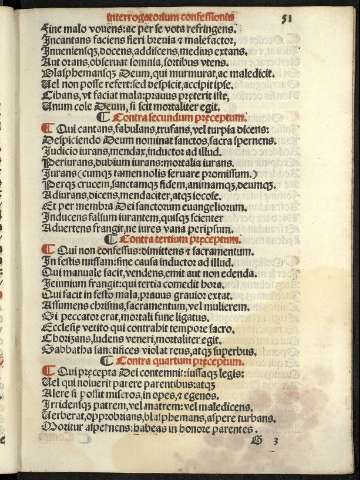 Interrogatorium confessionis 51
Fine malo vovens: ac per se vota refringens.
Incantans faciens fieri brevia & malefactor,
Inveniensq;, docens, addiscens, medius extans.
Aut orans, observat somnia, sortibus utens.
Blasphemansq; Deum, qui murmurat, ac maledicit.
Vel non posse refert: sed despicit, accipit ipse.
Cibans, ut faciat mala: prauus preterit iste,
Unum cole Deum, si scit mortaliter egit.
¶ Contra secundum preceptum.
¶ Qui cantans, fabulans, trufans, vel turpia dicens:
Despiciendo Deum nominat sanctos, sacra spernens.
Judicio iurans, mendax, inductor ad illud.
Periurans, dubium iurans: mortalia iurans.
Jurans (cumq; tamen nolis servare promissum.)
Perq; crucem, sanctamq; fidem, animamq;, deumq;.
Adiurans, dicens, mendaciter, atq; iocose.
Et per membra Dei sanctorum euangeliorum.
Inducens falsum iurantem, quisq; scienter
Advertens frangit, ne iures vana per ipsum.
¶ Contra tertium preceptum.
¶ Qui non confessus: dimittens & sacramentum.
In festo missam: sine causa inductor ad illud.
Qui manuale facit, vendens, emit aut non edenda.
Jeiunium frangit: qui tertia comedit hora.
Qui facit in festo mala, prauus gravior extat.
Assumens chrisma, sacramentum, vel mulierem.
Si peccator erat, mortali fune ligatus.
Ecclesie vetito qui contrahit tempore sacro,
Chorizans, ludens veneri, mortaliter egit.
Sabbatha sanctifices violat reus, atq; superbus.
¶ Contra quartum preceptum.
¶ Qui precepta Dei contemnit: iussaq; legis:
Vel qui noluerit parere parentibus: atq;
Alere si possit miseros, in opes, & egenos.
Irridensq; patrem, vel matrem: vel maledicens.
Verberat, opprobrians, blasphemans, aspere turbans.
Moritur aspernens: habeas in honore parentes.
G 3